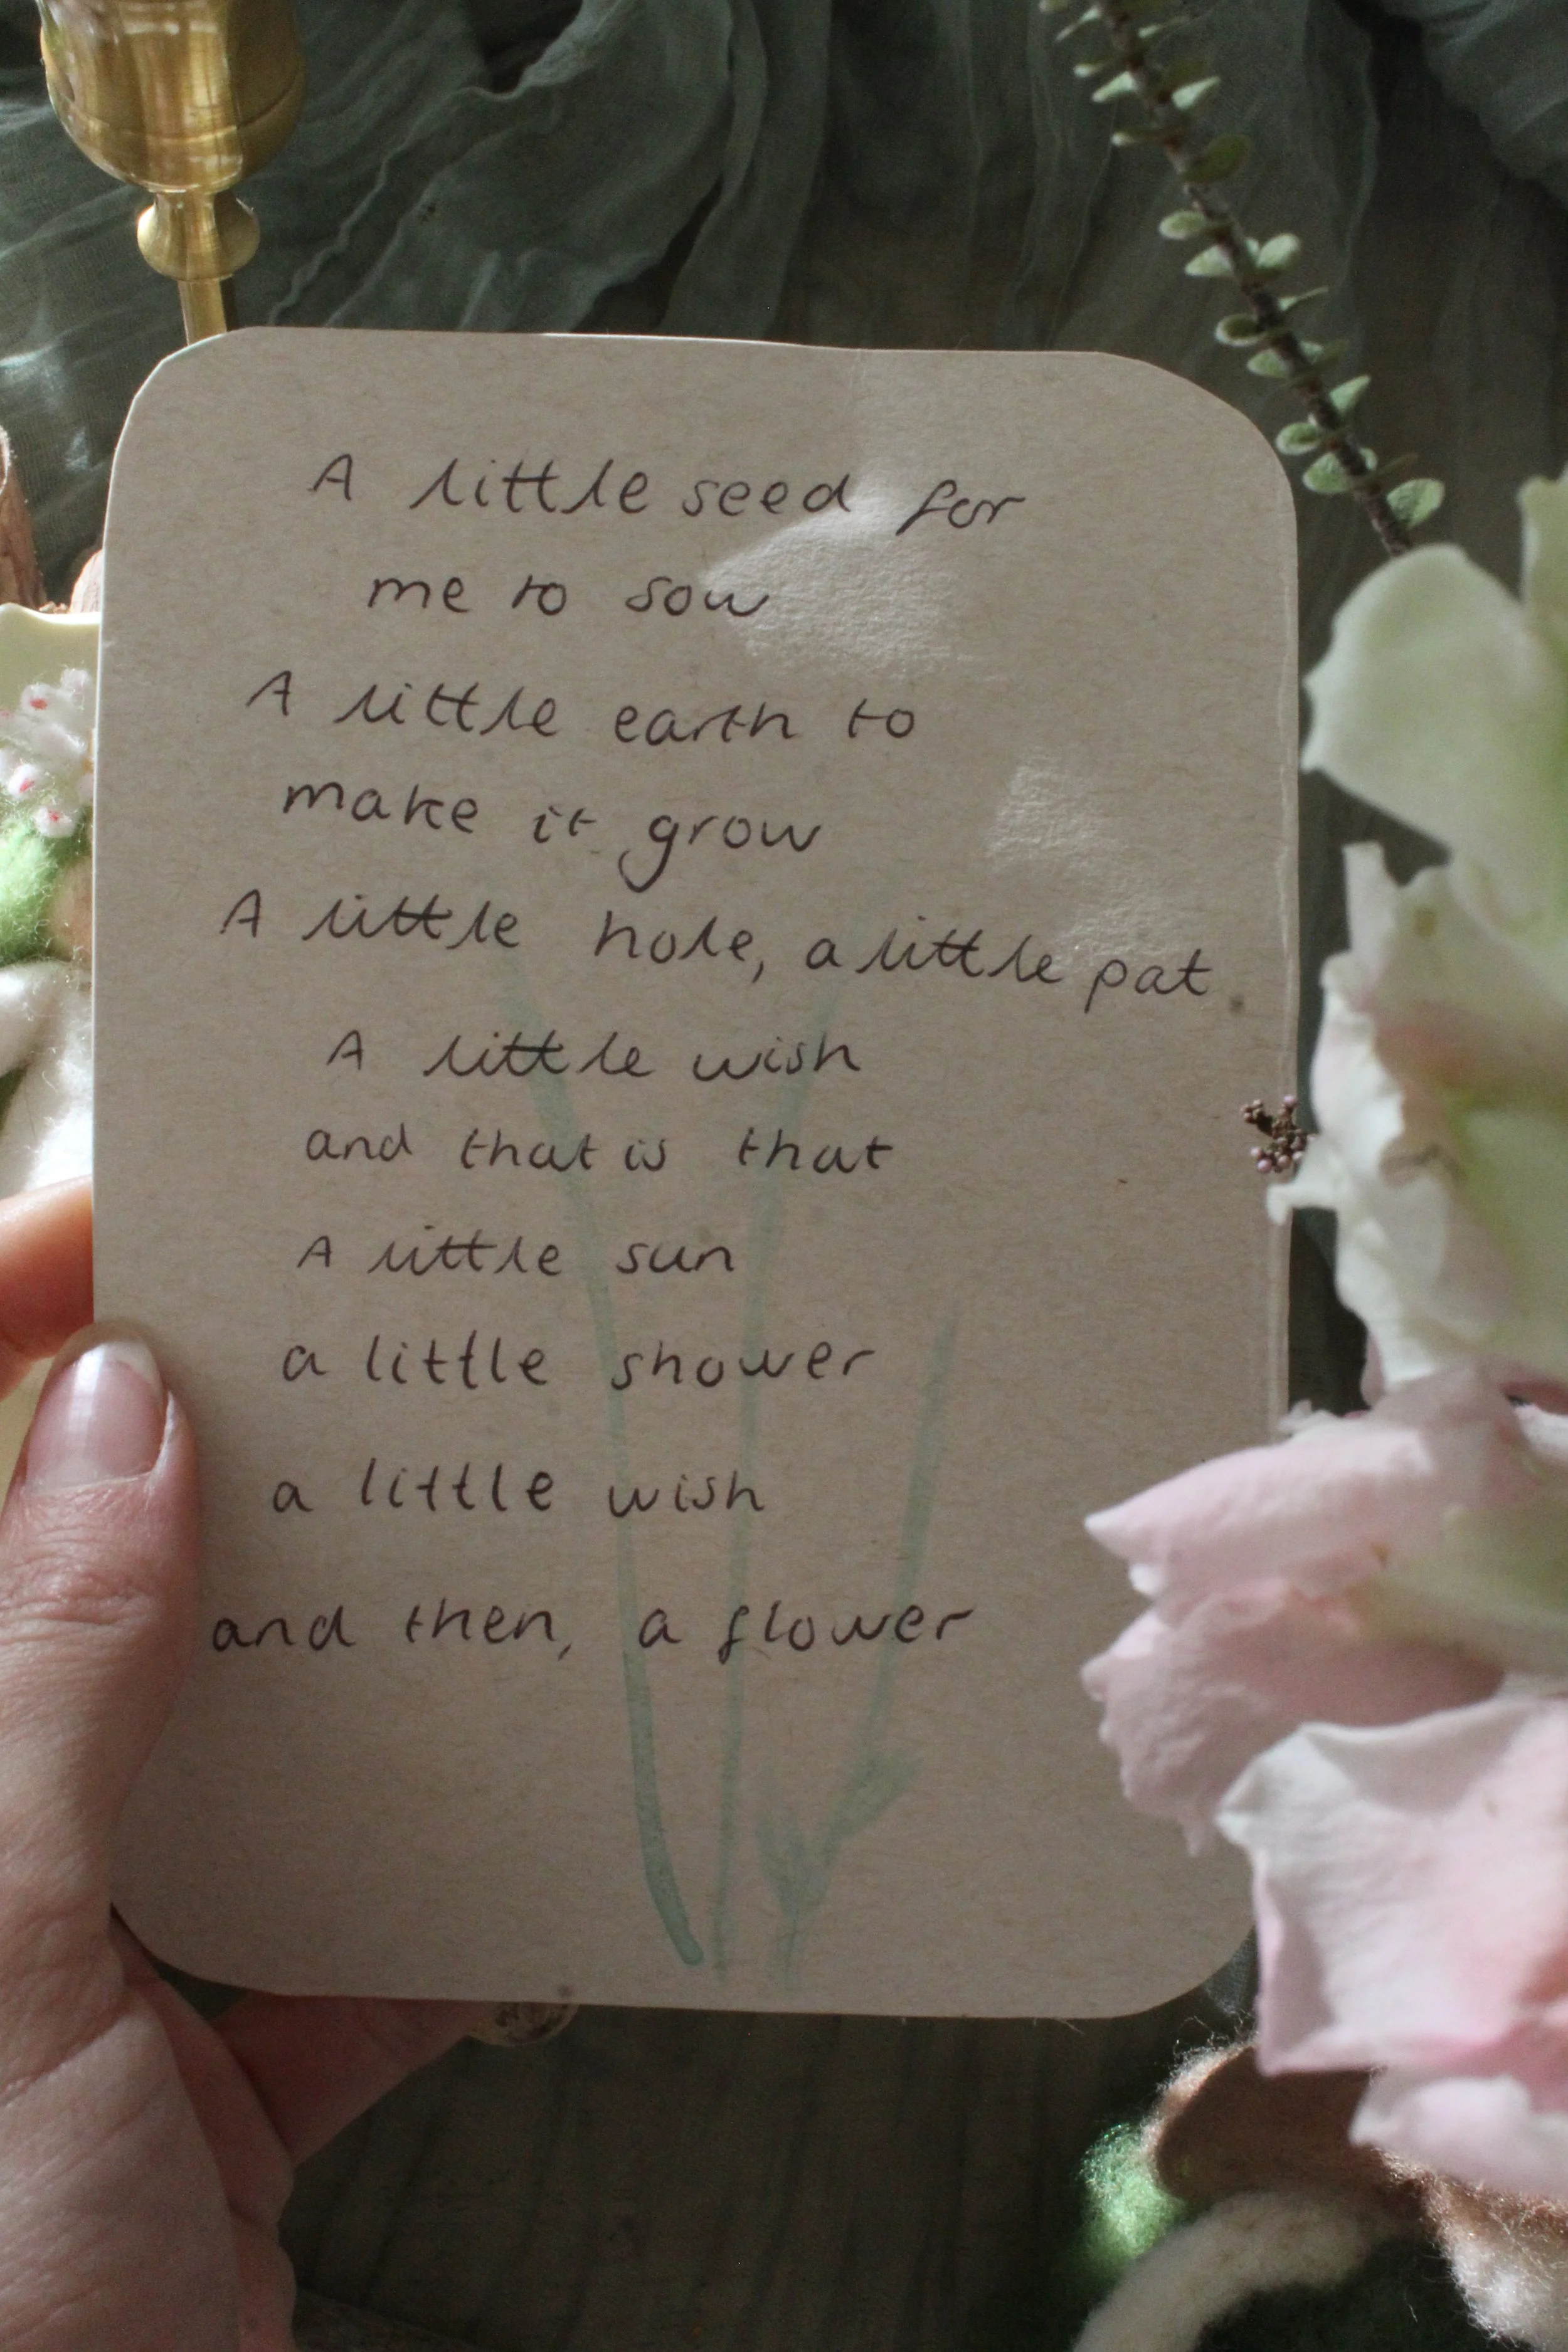 A little seed for
me to sow
A little earth to
make it grow
A little hole, a little pat.
A little wish
and that is that
A little sun
a little shower
a little wish
and then, a flower